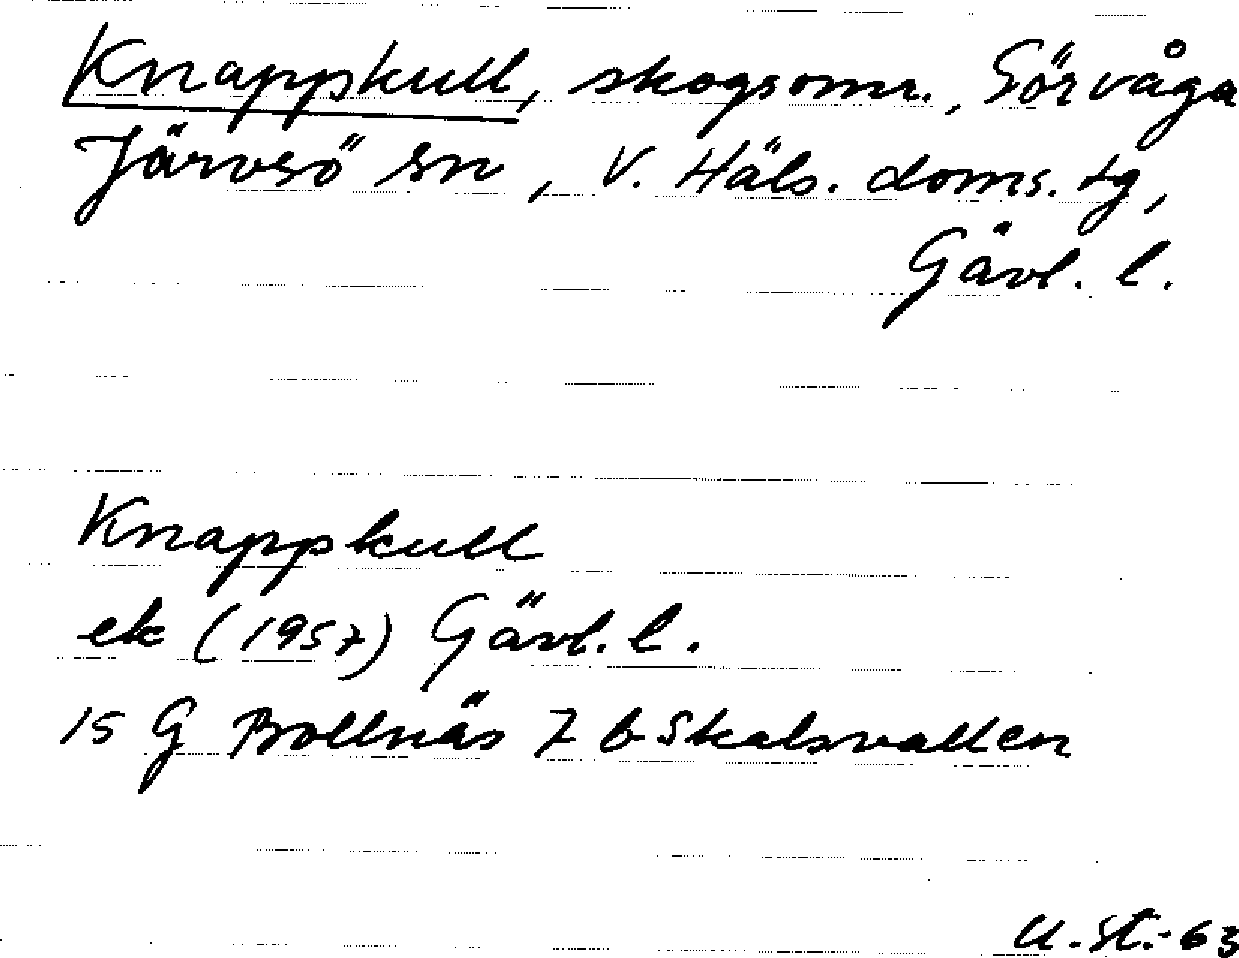 Knappkull, skogsomr., Sörvåga
Järvsö sn, V. Häls. doms. tg,
Gävl. l.
Knappkull
ek (1957) Gävl. l.
15 G Bollnäs 7 b Skalsvallen
U. St. - 63